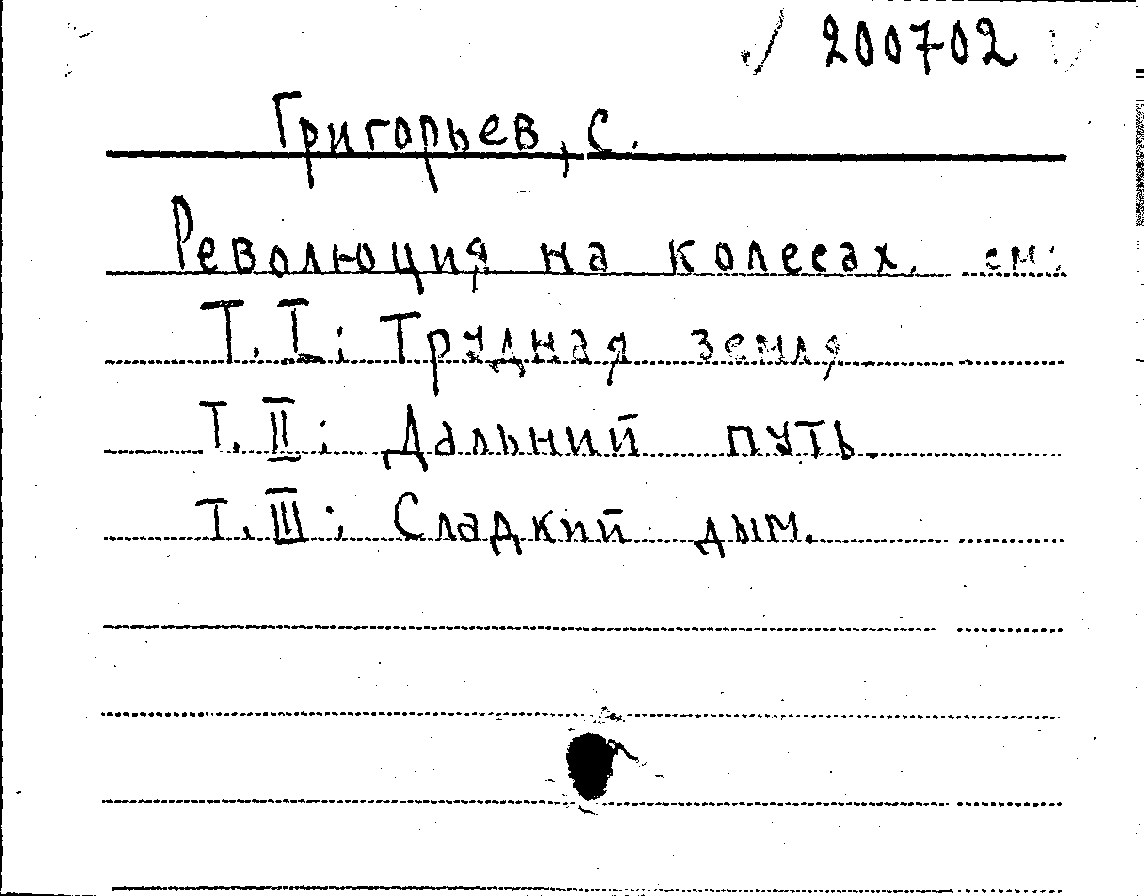 200702
Григорьев, С.
Революция на колесах. см:
Т. I: Трудная земля
Т. II: Дальний путь.
Т. III: Сладкий дым.